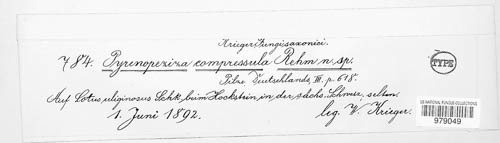 Krieger, Fungi saxonici.
784. Pyrenopeziza compressula Rehm n. sp.
TYPE
Pilze Deutschlands, III. p. 618.
Auf Lotus uliginosus Schk., beim Hockstein in der sächs. Schweiz, selten.
1. Juni 1892. leg. W. Krieger.
US NATIONAL FUNGUS COLLECTIONS
979049